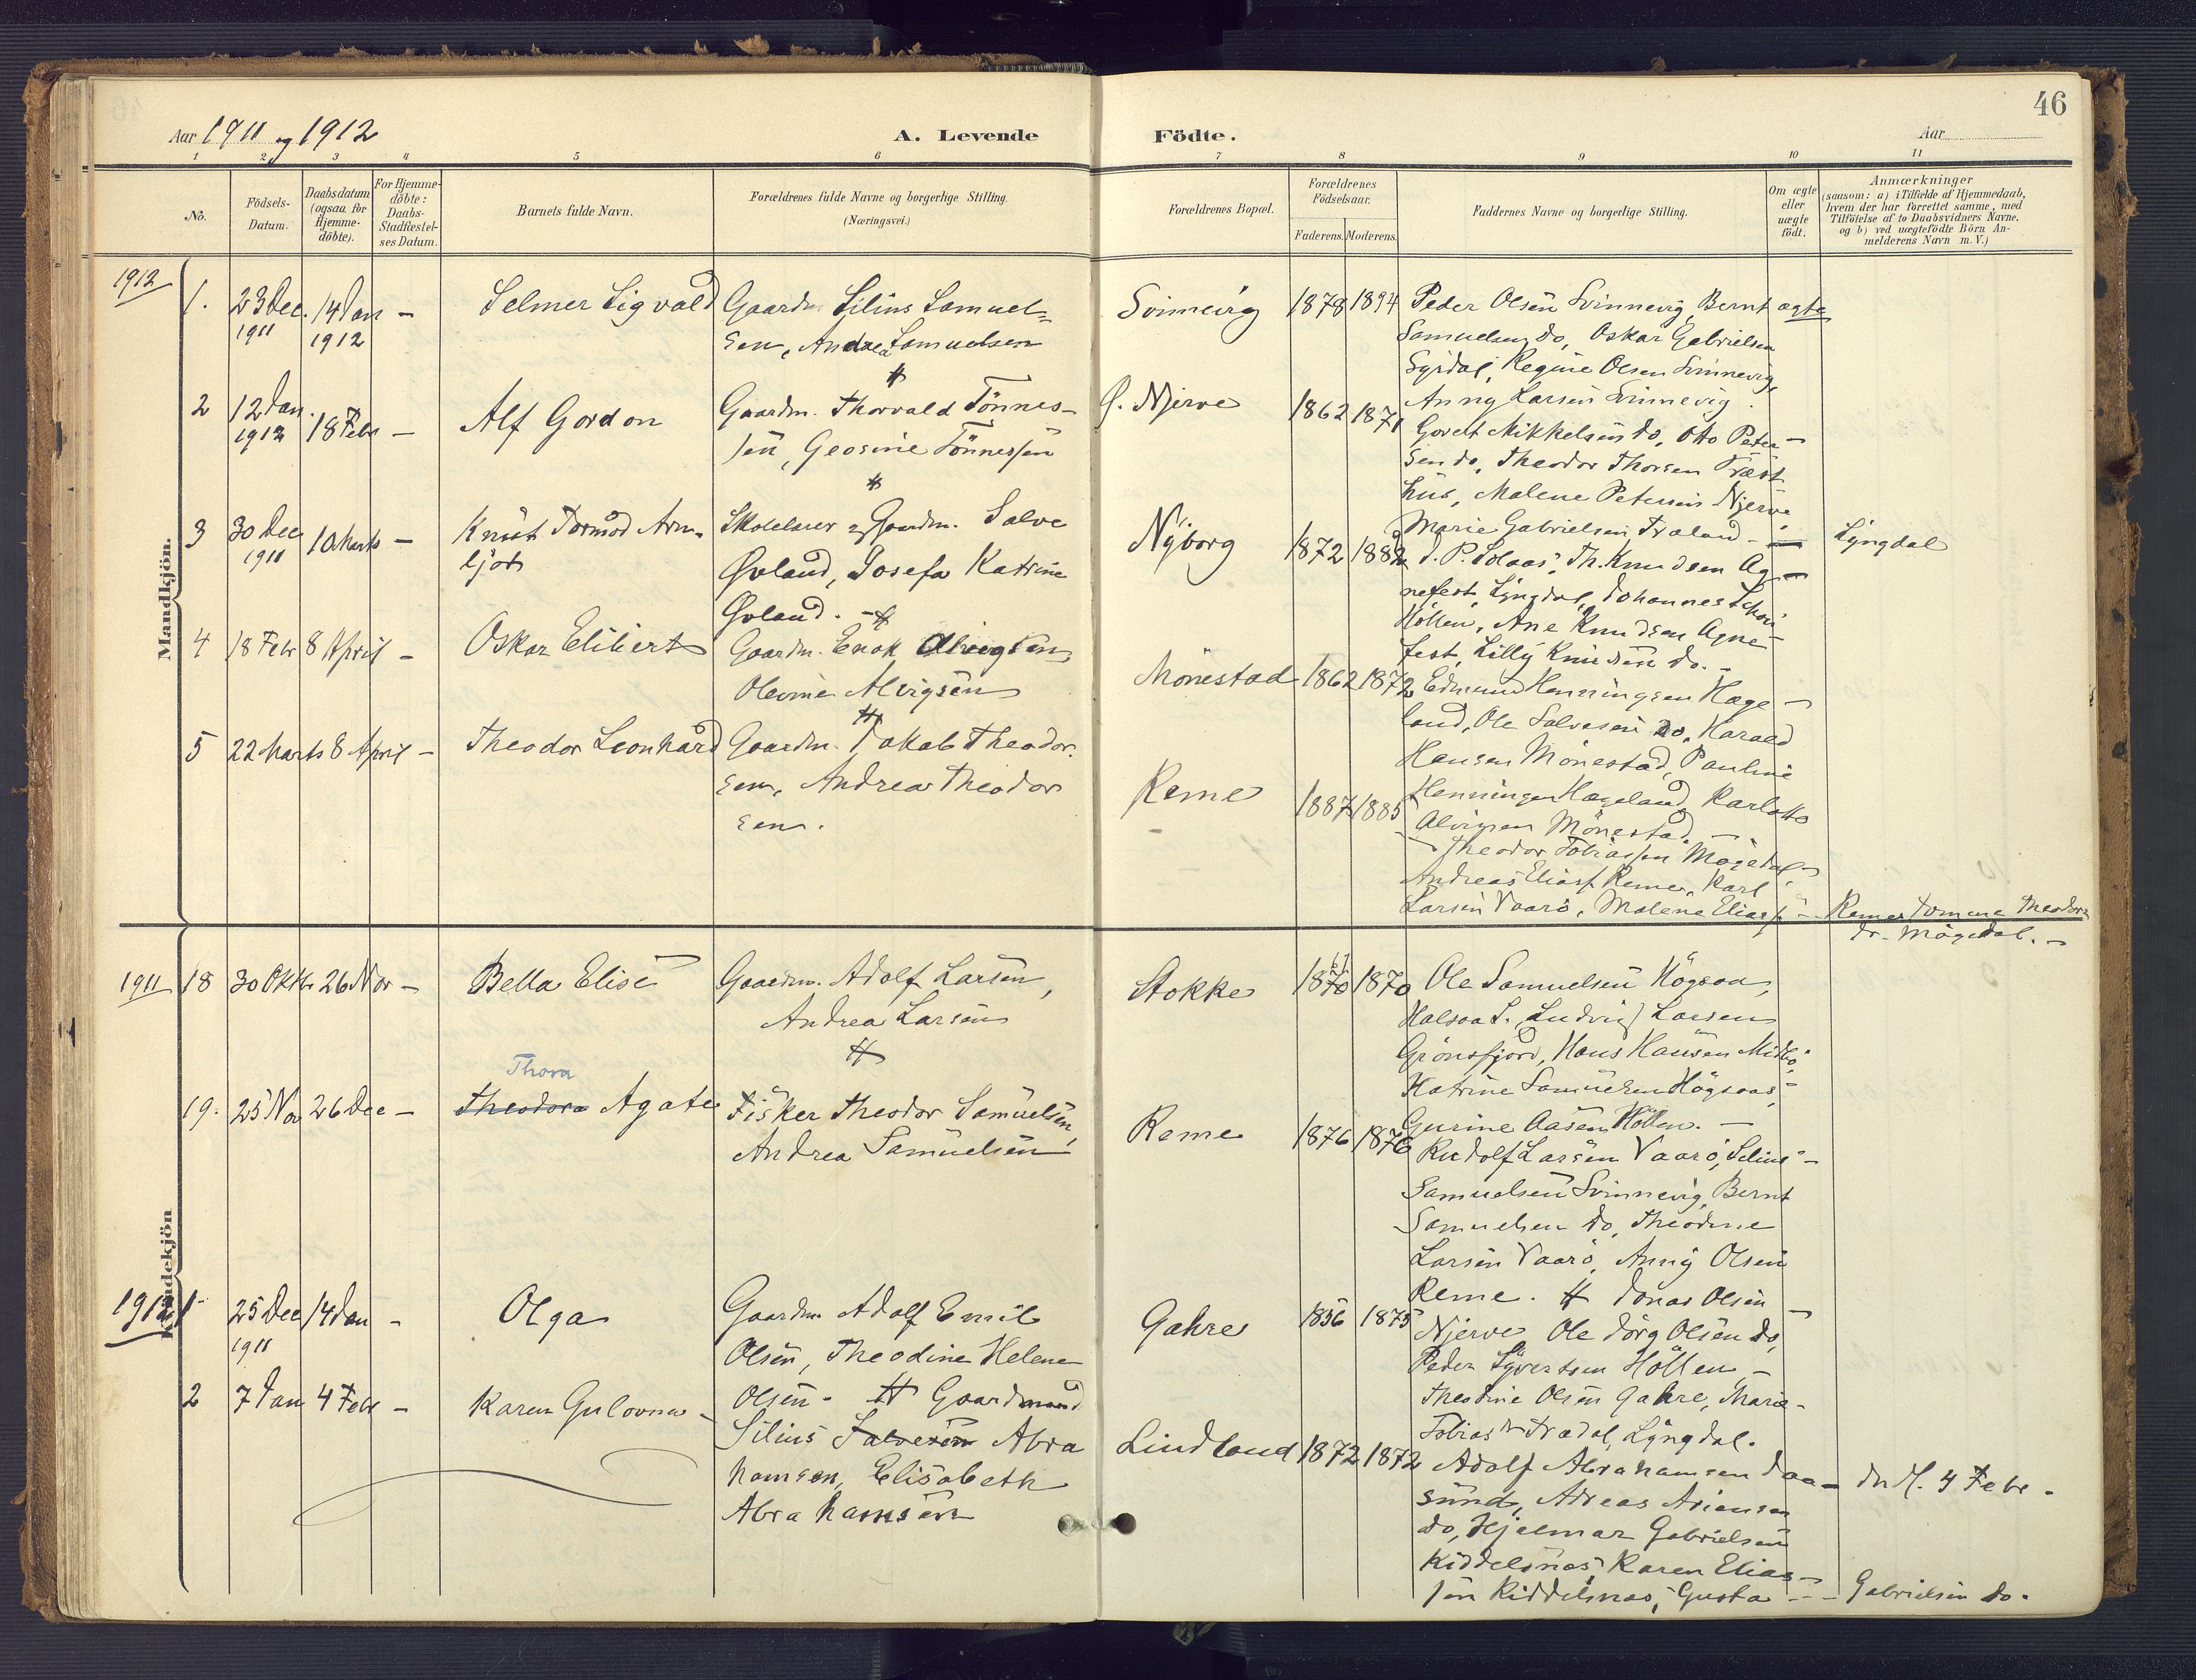 46
Aar 1911 og 1912
A. Levende Födte.
Aar
1 2 3 4 5 6 7 8 9 10 11
No.
Födsels-
Datum.
Daabsdatum
(ogsaa for
Hjemme-
döbte).
For Hjemme-
döbte:
Daabs-
Stadfæstel-
ses Datum.
Barnets fulde Navn.
Forældrenes fulde Navne og borgerlige Stilling.
(Næringsvei.)
Forældrenes Bopæl.
Forældrenes
Födselsaar.
Faderens. Moderens.
Faddernes Navne og borgerlige Stilling.
Om ægte
eller
uægte
födt.
Anmærkninger
(saasom: a) i Tilfælde af Hjemmedaab,
hvem der har forrettet samme, med
Tilföielse af to Daabsvidners Navne.
og b) ved uægtefödte Börn An-
melderens Navn m. V.)
Mandkjön.
1912
1. 23 Dec. 1911 14 Jan 1912 -
Selmer Sigvald
Gaardm. Silius Samuel=
sen, Andrea Samuelsen
Svinnevig
1878 1894
Peder Olsen Svinnevig, Bernt ægte
Samuelsen do, Oskar Gabrielsen
Syrdal, Regine Olsen Svinnevig,
Anny Larsen Svinnevig.
2 12 Jan. 1912 18 Febr -
Alf Gordon
Gaardm. Thorvald Tönnes-
sen, Geosine Tönnessen
Njerve
1862 1871
Mikkelsen do, Otto Peter-
sen do, Theodor Thorsen
hus, Malene Petersen Njerve,
Marie Gabrielsen
3 30 Dec 1911 10 Marts -
Knut Tormod Arn-
ljot
Skolelærer og Gaardm. Salve
Øvland, Josefa Katrine
Øvland.
Nyborg
1872 1882
Th. Knudsen Ag-
nefest, Lyngdal, Johannes
Höllen, Ane Knudsen Agne-
fest, Lilly Knudsen do.
Lyngdal
4 18 Febr 8 April -
Oskar Elibert
Gaardm. Enok Alvigsen,
Olevine Alvigsen
Mönestad
1862 1872
Edmund Henningsen Hage-
land, Ole Salvesen do, Harald
Hansen Mönestad, Pauline
Henningsen Hageland, Karl Otto
Alvigsen Mönestad.
5 22 Marts 8 April -
Theodor Leonhard
Gaardm. Jakob Theodor-
sen, Andrea Theodor
sen.
Reme
1887 1885
Theodor Tobiassen Mögedal,
Andreas Eliass. Reme, Karl
Larsen Vaarö, Malene Eliass.
Reme, Theodors
dr. Mögedal.
Kvindekjön
1911
18 30 Okt. 26 Nov -
Bella Elise
Gaardm. Adolf Larsen,
Andrea Larsen
Stokke
1870 1870
Ole Samuelsen Högsaa,
Halsaa S. Ludvig Larsen
Grönsfjord, Hans Hansen Midbö,
Katrine Samuelsen Högsaas,
Gurine Aasen Höllen.
19. 25 Nov 26 Dec -
Thora
Theodora Agate
Fisker Theodor Samuelsen,
Andrea Samuelsen
Reme
1876 1876
Rudolf Larsen Vaarö, Silius
Samuelsen Svinnevig, Bernt
Samuelsen do, Theodine
Larsen Vaarö, Anny Olsen
Reme.
1912
1 25 Dec 1911 14 Jan -
Olga
Gaardm. Adolf Emil
Olsen, Theodine Helene
Olsen.
Gahre
1856 1875
Jonas Olsen
Njerve, Ole Jörg Olsen do,
Peder Syvertsen Höllen,
Theodine Olsen Gahre, Marie
Tobias dr Lyngdal.
2 7 Jan 4 Febr -
Karen Gulovna
Gaardmand
Silius Salvesen Abra
hamsen, Elisabeth
Abrahamsen
Lindland
1872 1872
Adolf Abrahamsen Jaa-
sund, Ariansen
do, Hjalmar Gabrielsen
Kiddelsnæs, Karen Elias-
sen Kiddelsnæs, Gusta
4 Febr.
Gabrielsen do.